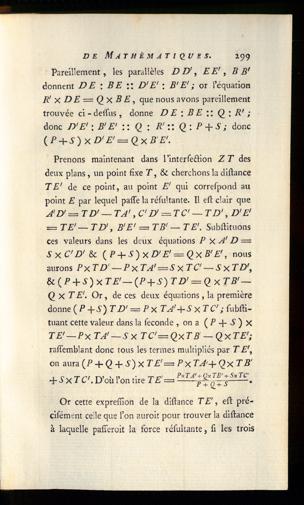 DE MATHÉMATIQUES. 299
Pareillement, les parallèles D D', E E', B B'
donnent D E : B E :: D'E' : B'E'; or l'équation
R' × D E = Q × B E, que nous avons pareillement
trouvée ci-dessus, donne D E : B E :: Q : R';
donc D'E' : B'E' :: Q : R' :: Q : P + S; donc
(P + S) × D'E' = Q × B'E'.
Prenons maintenant dans l'intersection Z T des
deux plans, un point fixe T, & cherchons la distance
TE' de ce point, au point E' qui correspond au
point E par lequel passe la résultante. Il est clair que
A'D' = TD' — TA', C'D' = TC' — TD', D'E'
= TE' — TD', B'E' = TB' — TE'. Substituons
ces valeurs dans les deux équations P × A'D' =
S × C'D' & (P + S) × D'E' = Q × B'E', nous
aurons P × TD' — P × TA' = S × TC' — S × TD',
& (P + S) × TE' — (P + S) TD' = Q × TB' —
Q × TE'. Or, de ces deux équations, la première
donne (P + S) TD' = P × TA' + S × TC'; substi-
tuant cette valeur dans la seconde, on a (P + S) ×
TE' — P × TA' — S × TC' = Q × TB' — Q × TE';
rassemblant donc tous les termes multipliés par TE',
on aura (P + Q + S) × TE' = P × TA' + Q × TB'
+ S × TC'. D'où l'on tire TE' = P×TA' + Q×TB' + S×TC' / P + Q + S.
Or cette expression de la distance TE', est pré-
cisément celle que l'on auroit pour trouver la distance
à laquelle passeroit la force résultante, si les trois